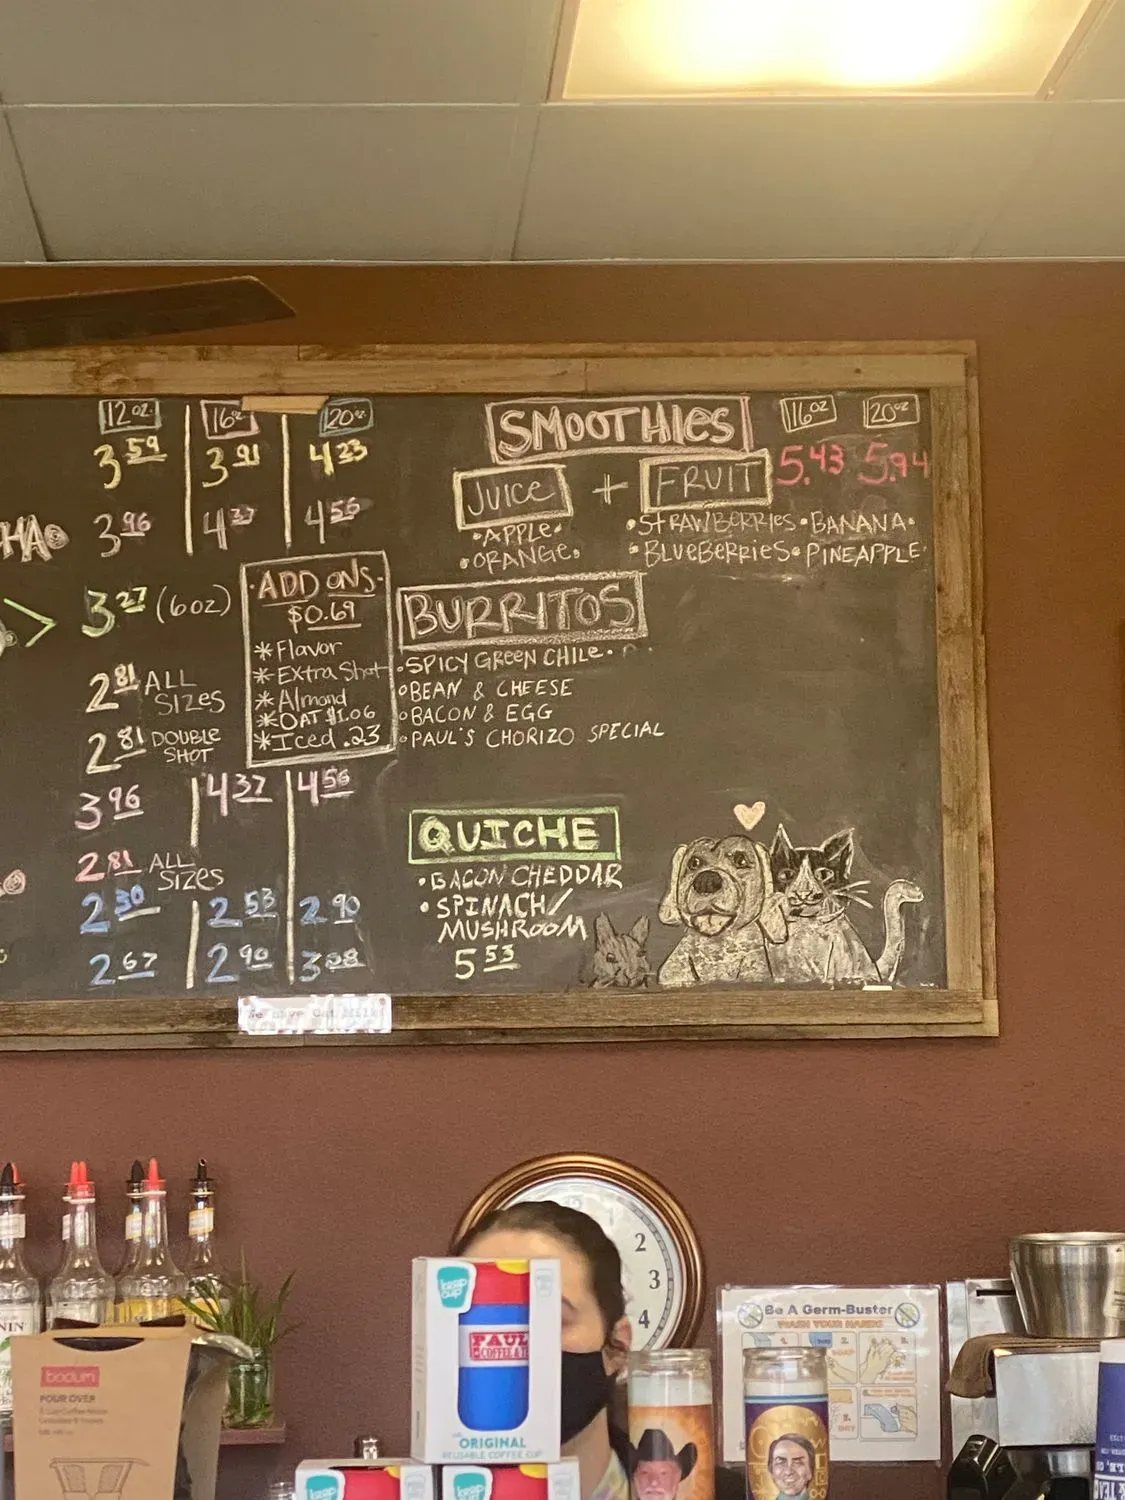 12oz 16oz 20oz
3 59 3 91 4 23
HA 3 96 4 37 4 56
3 27 (6oz)
2 81 ALL SIZES
2 81 DOUBLE SHOT
3 96 4 37 4 56
2 81 ALL SIZES
2 30 2 53 2 90
2 67 2 90 3 08
·ADD ONS·
$0.69
*Flavor
*Extra Shot
*Almond
*OAT $1.06
*Iced .23
SMOOTHIES 16oz 20oz
JUICE + FRUIT 5.43 5.94
•APPLE•
•ORANGE•
•STRAWBERRIES•BANANA•
•BLUEBERRIES•PINEAPPLE•
BURRITOS
•SPICY GREEN CHILE•
•BEAN & CHEESE
•BACON & EGG
•PAUL'S CHORIZO SPECIAL
QUICHE
•BACON CHEDDAR
•SPINACH/
MUSHROOM
5 53
We have Oat
2
3
4
keep cup
PAUL
COFFEE & T
ORIGINAL
REUSABLE COFFEE CUP
bodum
POUR OVER
Be A Germ-Buster
WASH YOUR HANDS
NIN
keep
keep